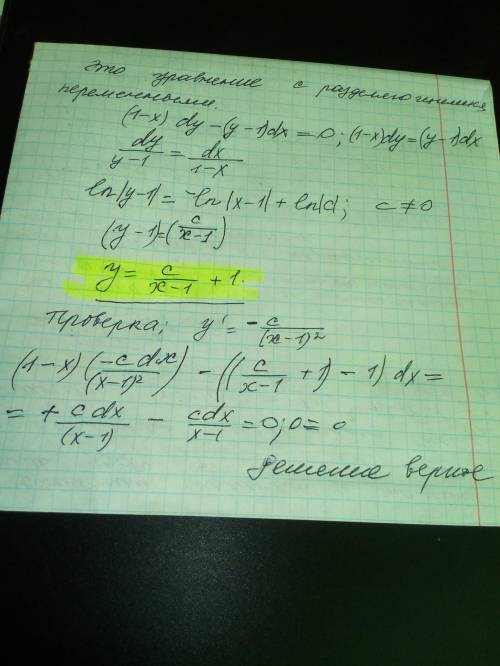 это уравнение с разделяющимися
переменными.
(1-x) dy - (y-1)dx = 0; (1-x)dy = (y-1)dx
dy/(y-1) = dx/(1-x)
ln|y-1| = -ln|x-1| + ln|c|; c ≠ 0
(y-1) = (c/(x-1))
y = c/(x-1) + 1.
Проверка; y' = - c/(x-1)²
(1-x) (-c dx/(x-1)²) - ((c/(x-1) + 1) - 1) dx =
= + c dx/(x-1) - cdx/(x-1) = 0; 0 = 0
решение верно